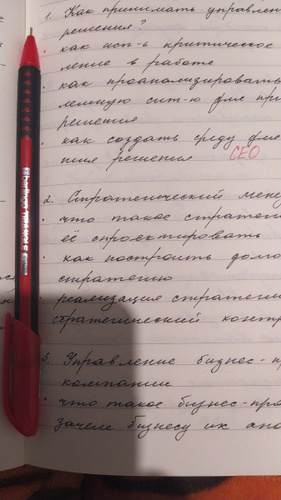 1. Как принимать управлен
решения?
• как исп-ь критическое
ление в работе
• как проанализировать
лемную сит-ю для при
решения
• как создать среду для
тия решения CEO
2. Стратегический мене
• что такое стратеги
её спроектировать
• как построить дом
стратегию
• реализация стратегии
стратегический контр
3. Управление бизнес-п
компании
• что такое бизнес-про
зачем бизнесу их
berlingo TRIANGLE